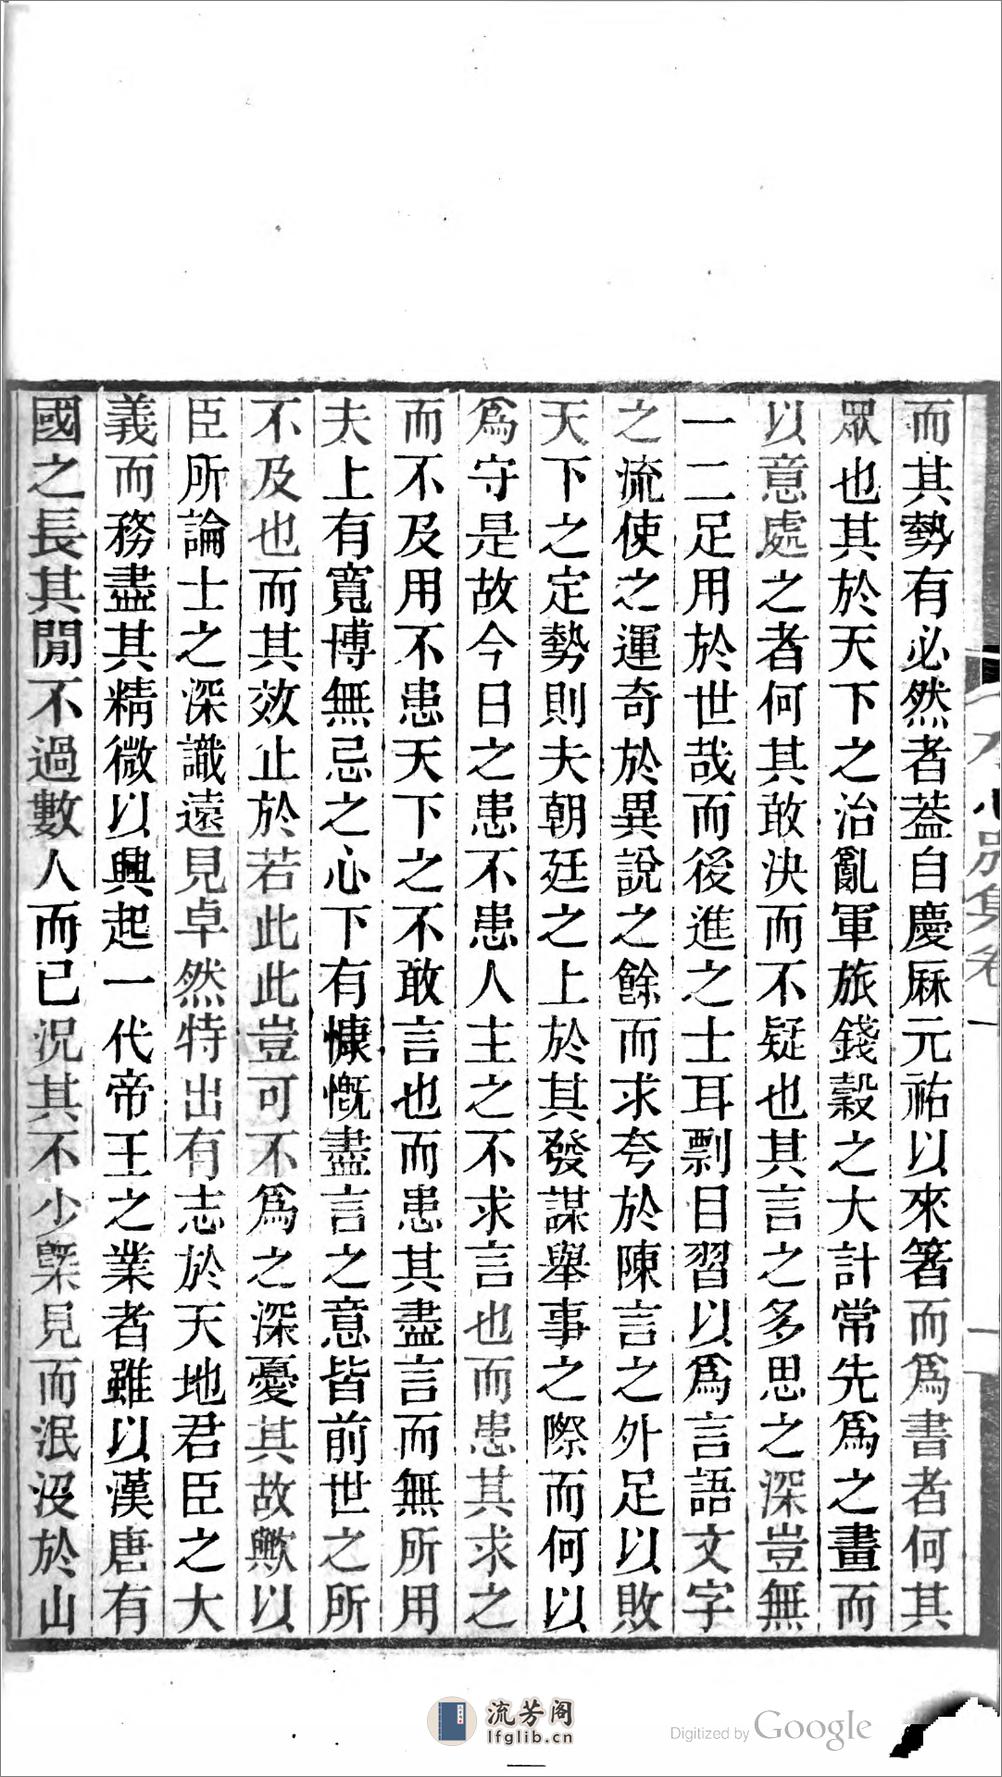 而其勢有必然者葢自慶厤元祐以來箸而爲書者何其
眾也其於天下之治亂軍旅錢穀之大計常先爲之畫而
以意處之者何其敢決而不疑也其言之多思之深豈無
一二足用於世哉而後進之士耳剽目習以爲言語文字
之流使之運奇於異說之餘而求夸於陳言之外足以敗
天下之定勢則夫朝廷之上於其發謀舉事之際而何以
爲守是故今日之患不患人主之不求言也而患其求之
而不及用不患天下之不敢言也而患其盡言而無所用
夫上有寬博無忌之心下有慷慨盡言之意皆前世之所
不及也而其效止於若此此豈可不爲之深憂其故歟以
臣所論士之深識遠見卓然特出有志於天地君臣之大
義而務盡其精微以興起一代帝王之業者雖以漢唐有
國之長其閒不過數人而已況其不少槩見而泯沒於山
水心別集卷一
一
流芳阁
lfglib.cn
Digitized by Google